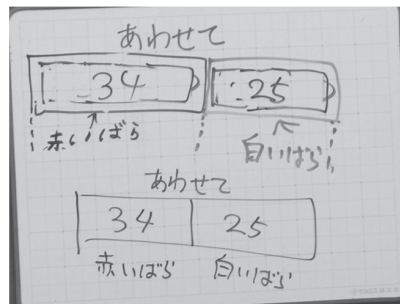 あわせて
34 25
赤いばら 白いばら
あわせて
34 25
赤いばら 白いばら